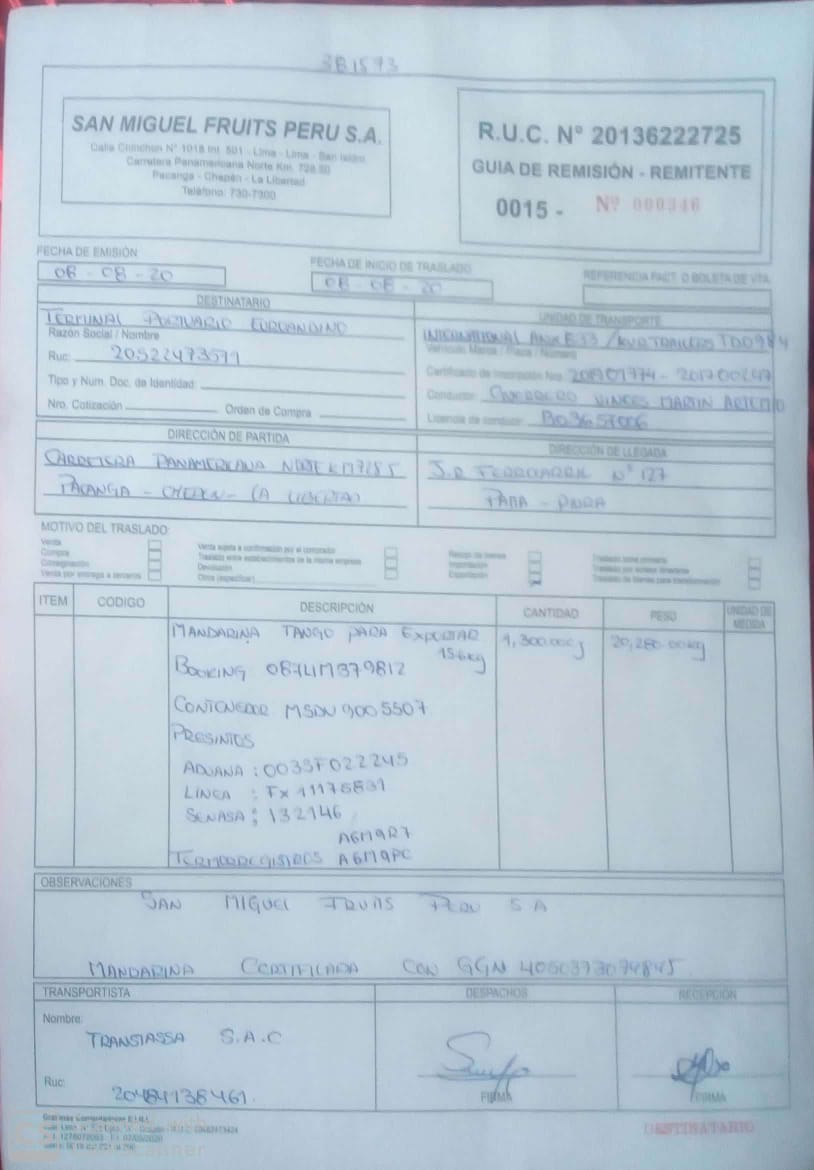 3B1593
SAN MIGUEL FRUITS PERU S.A.
Calle Chinchon N° 1018 Int. 501 - Lima - Lima - San Isidro
Carretera Panamericana Norte Km.
Pacanga - Chepén - La Libertad
Teléfono: 730-7900
R.U.C. N° 20136222725
GUIA DE REMISIÓN - REMITENTE
0015 - Nº 000346
FECHA DE EMISIÓN
08 - 08 - 20
FECHA DE INICIO DE TRASLADO
08 - 08 - 20
REFERENCIA FACT. O BOLETA DE VTA.
DESTINATARIO
TERMINAL PORTUARIO EUROANDINO
Razón Social / Nombre
Ruc: 20522473571
Tipo y Num. Doc. de Identidad:
Nro. Cotización Orden de Compra
UNIDAD DE TRANSPORTE
INTERNATIONAL
Vehículo Marca / Placa / Número
Certificado de Inscripción Nro.
Conductor: GUERRERO VINCES MARTIN ARTEMIO
Licencia de conducir: B03657006
DIRECCIÓN DE PARTIDA
CARRETERA PANAMERICANA NORTE
PACANGA - CHEPEN - LA LIBERTAD
DIRECCIÓN DE LLEGADA
J.R FERROCARRIL N° 127
PAITA - PIURA
MOTIVO DEL TRASLADO
Venta
Compra
Consignación
Venta por entrega a terceros
Venta sujeta a confirmación por el comprador
Traslado entre establecimientos de la misma empresa
Devolución
Otros (especificar)
Recojo de bienes
Importación
Exportación
Traslado zona primaria
Traslado por emisor itinerante
Traslado de bienes para transformación
ITEM CODIGO DESCRIPCIÓN CANTIDAD PESO UNIDAD DE MEDIDA
MANDARINA TANGO PARA EXPORTAR 1,300.00 20,280.00 kg
15.6kg
BOOKING 087LIM379812
CONTENEDOR MSDU 9005507
PRESINTOS
ADUANA : 0035F022245
LINEA : FX 11175831
SENASA : 132146
A6M9R7
TERMORREGISTROS A6M9PC
OBSERVACIONES
SAN MIGUEL FRUITS PERU S A
MANDARINA CERTIFICADA CON GGN 4050373074845
TRANSPORTISTA
Nombre:
TRANSTASSA S.A.C
Ruc: 20484138461.
DESPACHOS
FIRMA
RECEPCIÓN
FIRMA
DESTINATARIO